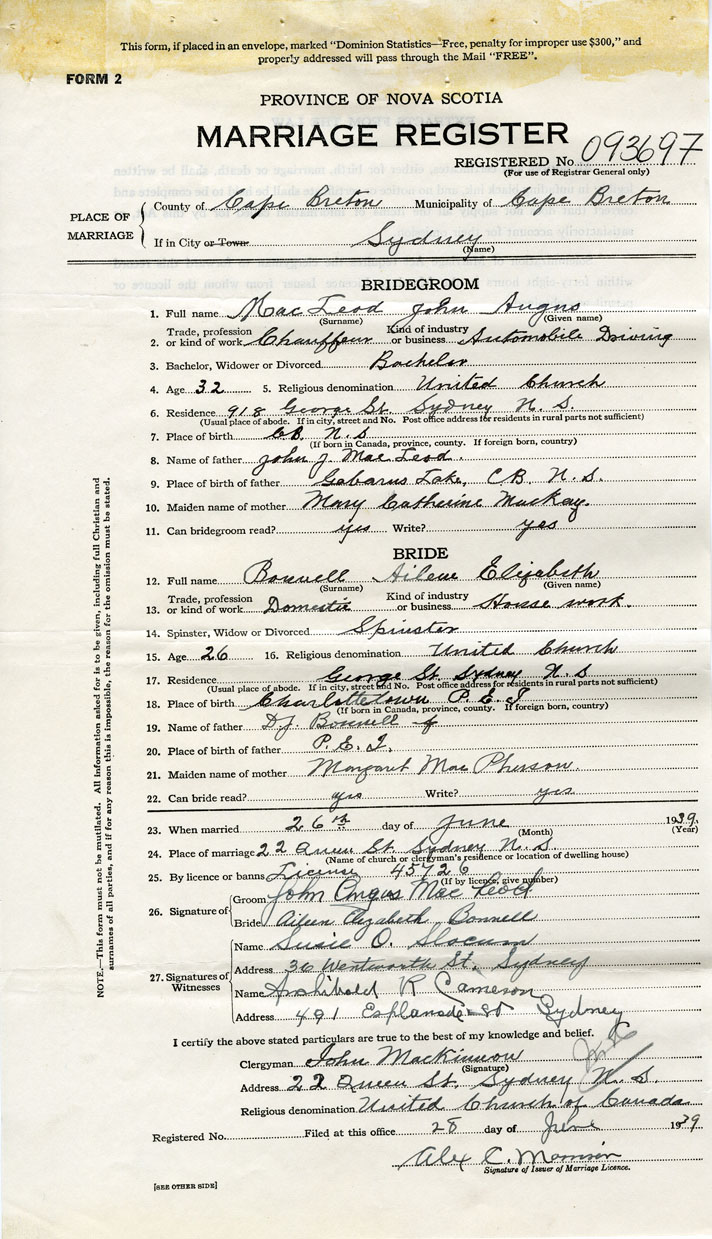 This form, if placed in an envelope, marked "Dominion Statistics—Free, penalty for improper use $300," and
properly addressed will pass through the Mail "FREE".
FORM 2
PROVINCE OF NOVA SCOTIA
MARRIAGE REGISTER
REGISTERED No. 093697
(For use of Registrar General only)
PLACE OF MARRIAGE
County of Cape Breton Municipality of Cape Breton
If in City or Town Sydney
(Name)
BRIDEGROOM
1. Full name MacLeod John Angus
(Surname) (Given name)
2. Trade, profession or kind of work Chauffeur Kind of industry or business Automobile Driving
3. Bachelor, Widower or Divorced Bachelor
4. Age 32 5. Religious denomination United Church
6. Residence 918 George St. Sydney N. S.
(Usual place of abode. If in city, street and No. Post office address for residents in rural parts not sufficient)
7. Place of birth C.B. N.S
(If born in Canada, province, county. If foreign born, country)
8. Name of father John J. MacLeod.
9. Place of birth of father Gabarus Lake, C.B. N.S.
10. Maiden name of mother Mary Catherine MacKay.
11. Can bridegroom read? yes Write? yes
BRIDE
12. Full name Bonnell Ailene Elizabeth
(Surname) (Given name)
13. Trade, profession or kind of work Domestic Kind of industry or business House work.
14. Spinster, Widow or Divorced Spinster
15. Age 26 16. Religious denomination United Church
17. Residence George St. Sydney N. S
(Usual place of abode. If in city, street and No. Post office address for residents in rural parts not sufficient)
18. Place of birth Charlottetown P. E. I
(If born in Canada, province, county. If foreign born, country)
19. Name of father D.J. Bonnell
20. Place of birth of father P. E. I.
21. Maiden name of mother Margaret MacPherson.
22. Can bride read? yes Write? yes
23. When married 26th day of June 1939.
(Month) (Year)
24. Place of marriage 22 Queen St. Sydney N. S
(Name of church or clergyman's residence or location of dwelling house)
25. By licence or banns License 45726
(If by licence, give number)
26. Signature of
Groom John Angus MacLeod
Bride Aileen Elizabeth Bonnell
27. Signatures of Witnesses
Name Susie O. Slocum
Address 36 Wentworth St, Sydney
Name Archibald R Cameron
Address 491 Esplanade St Sydney
I certify the above stated particulars are true to the best of my knowledge and belief.
Clergyman John MacKinnon
(Signature)
Address 22 Queen St. Sydney N. S.
Religious denomination United Church of Canada
Registered No. Filed at this office 28 day of June 1939
Alex C. Morrison
Signature of Issuer of Marriage Licence.
[SEE OTHER SIDE]
NOTE.—This form must not be mutilated. All information asked for is to be given, including full Christian and
surnames of all parties, and if for any reason this is impossible, the reason for the omission must be stated.